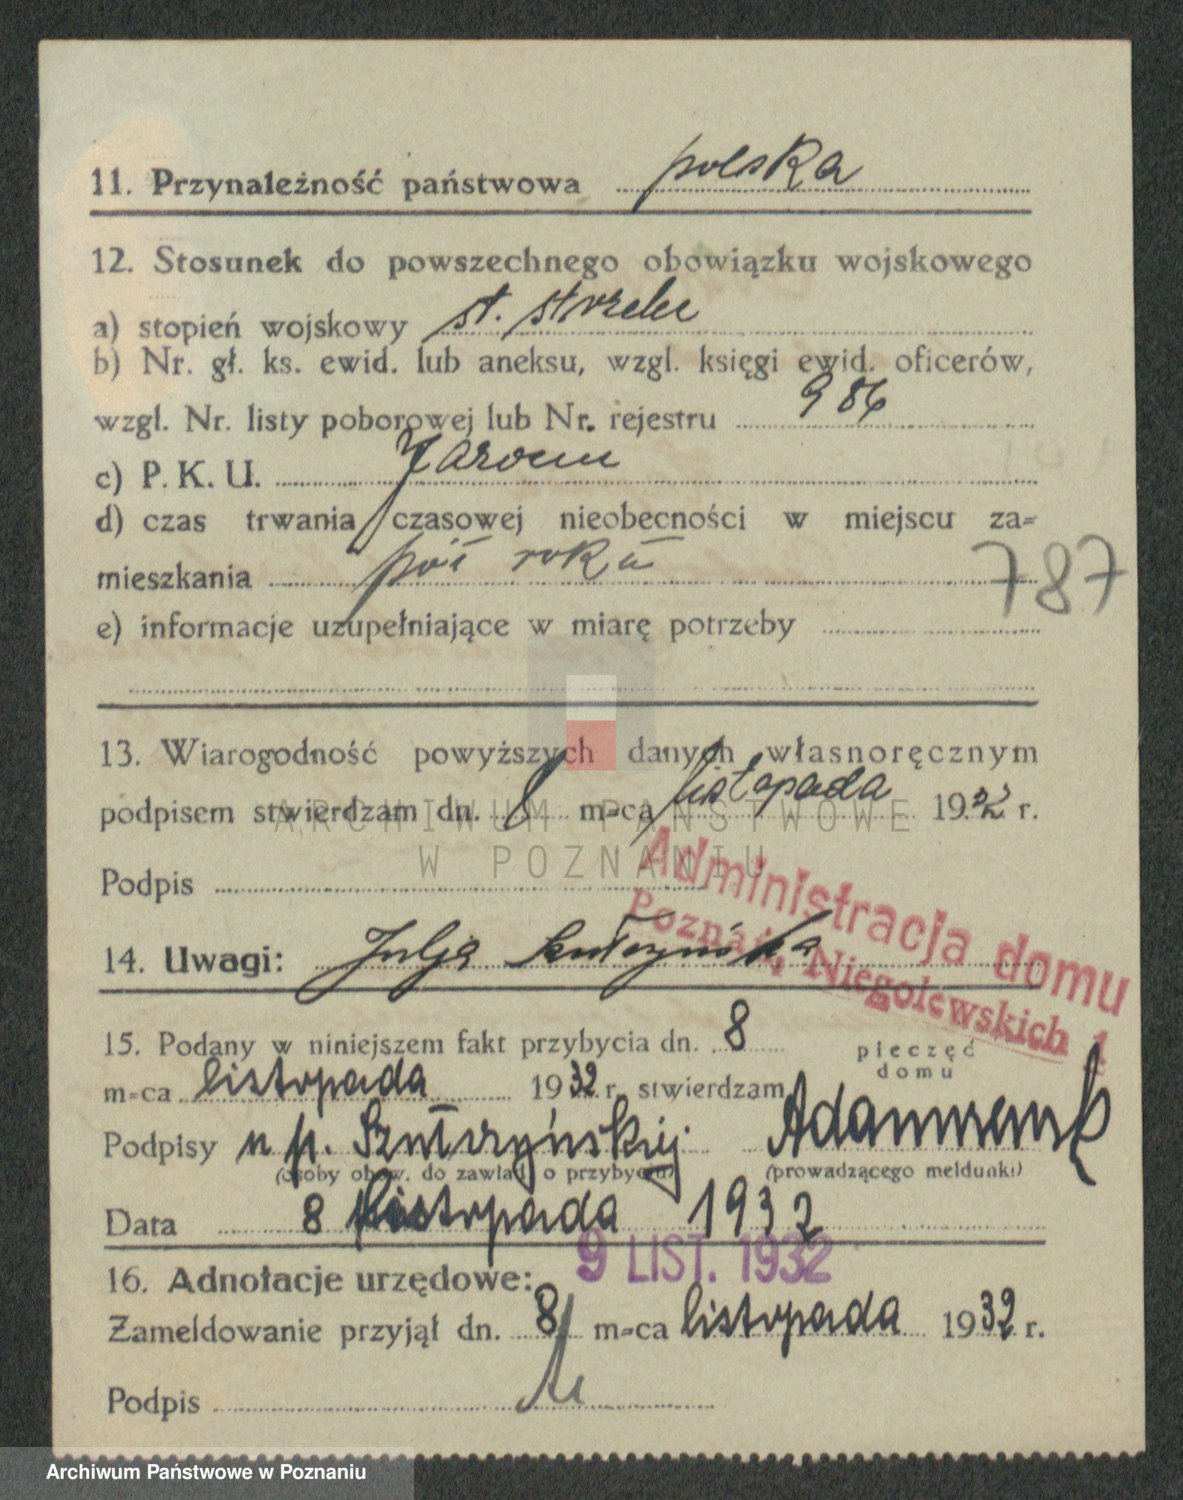 11. Przynależność państwowa polska
12. Stosunek do powszechnego obowiązku wojskowego
a) stopień wojskowy st. strzelec
b) Nr. gł. ks. ewid. lub aneksu, wzgl. księgi ewid. oficerów,
wzgl. Nr. listy poborowej lub Nr. rejestru 986
c) P. K. U. Jarocin
d) czas trwania czasowej nieobecności w miejscu za=
mieszkania pół roku
787
e) informacje uzupełniające w miarę potrzeby
13. Wiarogodność powyższych danych własnoręcznym
podpisem stwierdzam dn. 8 m=ca listopada 1932 r.
ARCHIWUM PAŃSTWOWE
W POZNANIU
Podpis
Administracja domu
Poznań, Niegolewskich 1
14. Uwagi: Julja
15. Podany w niniejszem fakt przybycia dn. 8
pieczęć
domu
m=ca listopada 1932 r. stwierdzam
Podpisy
(osoby obow. do zawiad. o przybyciu) (prowadzącego meldunki)
Data 8 listopada 1932
9 LIST. 1932
16. Adnotacje urzędowe:
Zameldowanie przyjął dn. 8 m=ca listopada 1932 r.
Podpis
Archiwum Państwowe w Poznaniu